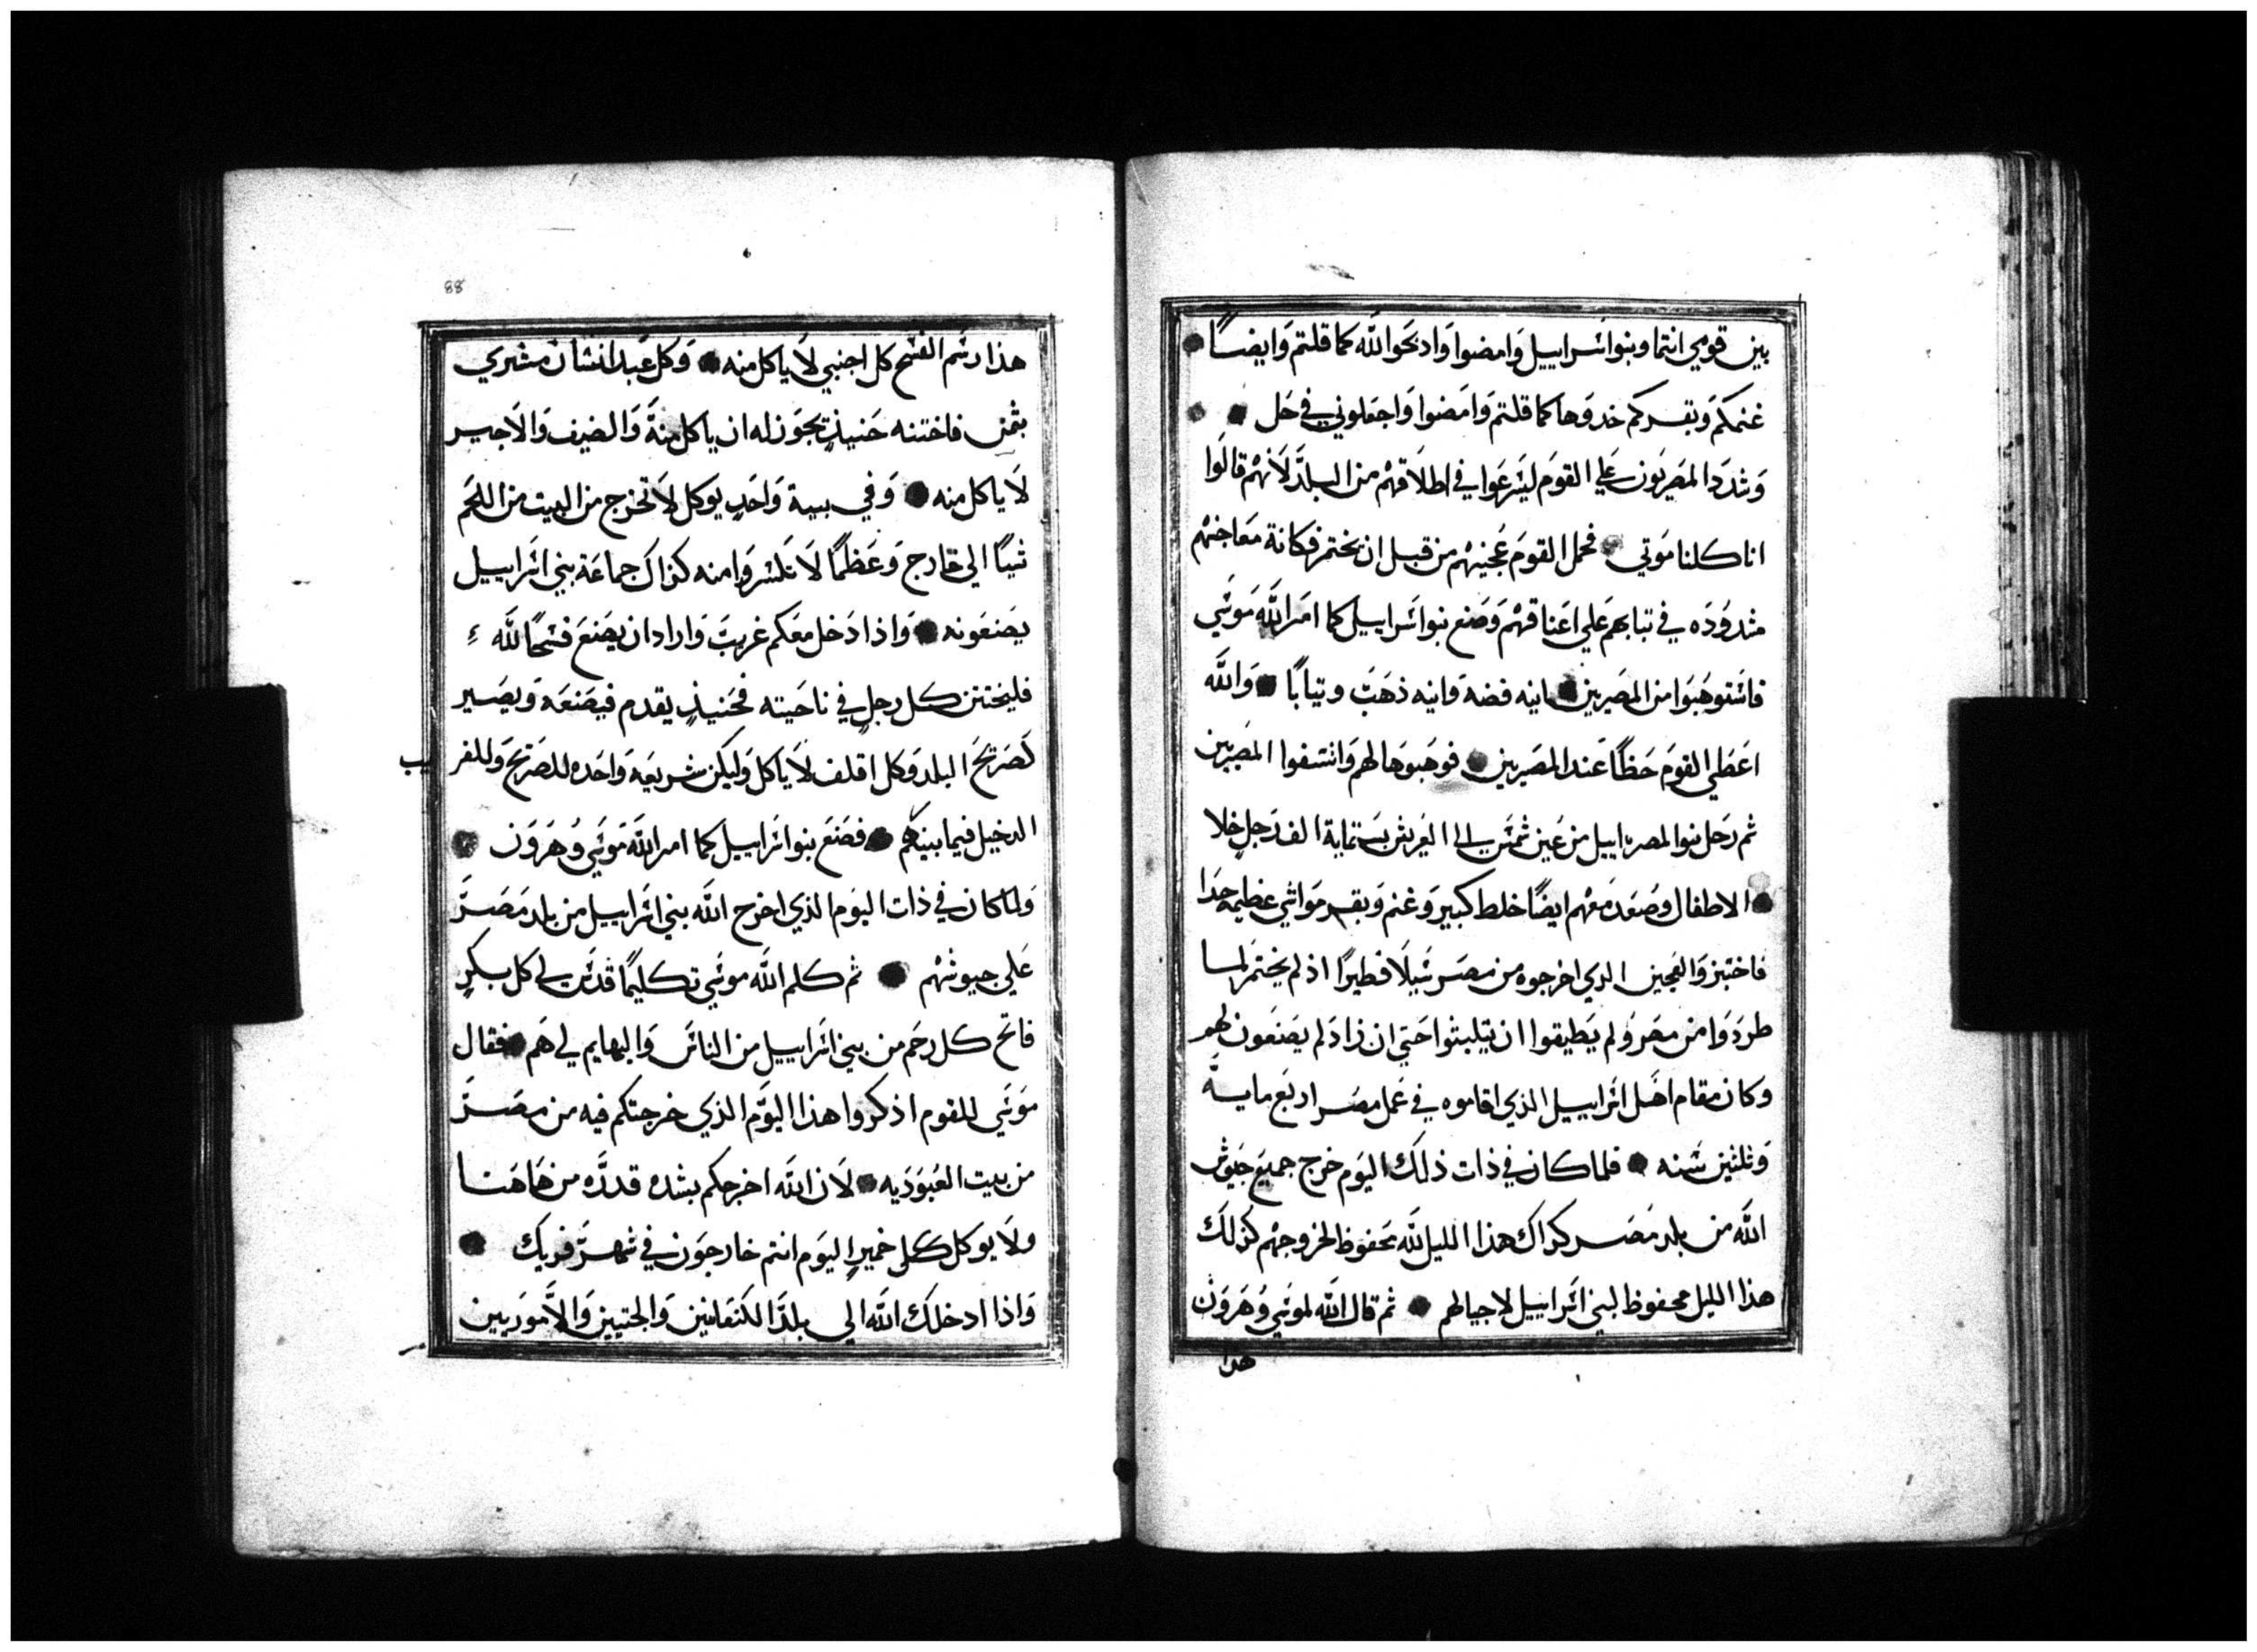 بين قومي انتما وبنو اسراييل وامضوا وادبحوا لله كما قلتم وايضًا
غنمكم وبقركم خدوها كما قلتم وامضوا واجعلوني في حل
وشدد المصريون علي القوم ليسرعوا في اطلاقهم من البلد لانهم قالوا
اناكلنا موتي فحمل القوم عجينهم من قبل ان يختمر فكانة معاجنهم
مشدوده في تيابهم علي اعناقهم وصنع بنو اسراييل كما امر الله موسي
فاستوهبوا من المصريين انيه فضه وانيه ذهب وتيابًا والله
اعطي القوم حظًا عند المصريين فوهبوها لهم وانتسفوا المصريين
ثم رحل بنوا المصراييل من عين شمس الي العريش بستماية الف رجل خلا
الاطفال وصعد معهم ايضًا خلط كبير وغنم وبقر مواشي عظيمه جدا
فاختبزوا لعجين الدي اخرجوه من مصر سيلا فطيرًا اذ لم يختمر لما
طردوا من مصر ولم يطيقوا ان يتلبثوا حتي ان زاد لم يصنعون لهم
وكان مقام اهل اسراييل الذي اقاموه في عمل مصر اربع ماية
وثلثين سنه فلما كان في ذات ذلك اليوم خرج جميع جيوش
الله من بلد مصر كداك هذا الليل لله محفوظ لخروجهم كذلك
هذا الليل محفوظ لبني اسراييل لاجيالهم ثم قال الله لموسي وهرون
هدا
88
هذا رسم الفسح كل اجنبي لا ياكل منه وكل عبد انسان مشري
بثمن فاختنه حنيذٍ يجوز له ان ياكل منة والضيف والاجير
لا ياكل منه وفي بية واحدٍ يوكل لا تخرج من البيت من اللحم
شيًا الي خارج وعظمًا لا تكسروا منه كذاك جماعة بني اسراييل
يصنعونه واذا دخل معكم غريب واراد ان يصنع فسحًا لله
فليختتن كل رجل في ناحيته فحنيذٍ يقدم فيصنعه ويصير
كصريح البلد وكل اقلف لا ياكل وليكن شريعه واحده للصريح وللغريب
الدخيل فيما بينكم فصنع بنو اسراييل كما امر الله موسي وهرون
ولما كان في ذات اليوم الذي اخرج الله بني اسراييل من بلد مصر
علي جيوشهم ثم كلم الله موسي تكليمًا قدس لي كل بكرٍ
فاتح كل رحم من بني اسراييل من الناس والبهايم لي هم فقال
موسي للقوم اذكروا هذا اليوم الذي خرجتكم فيه من مصر
من بيت العبوديه لان الله اخرجكم بشده قدره من هاهنا
ولا يوكل كل خميرٍ اليوم انتم خارجون في شهر فريك
واذا ادخلك الله الي بلد الكنعانيين والحتيين والاموريين